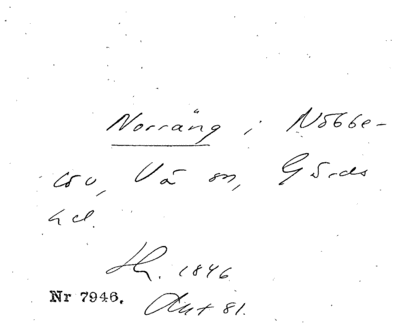 Norräng i Nöbbe-
löv, Vä sn, Gärds
hd.
Hr. 1846
Nr 7946. Akt 81.